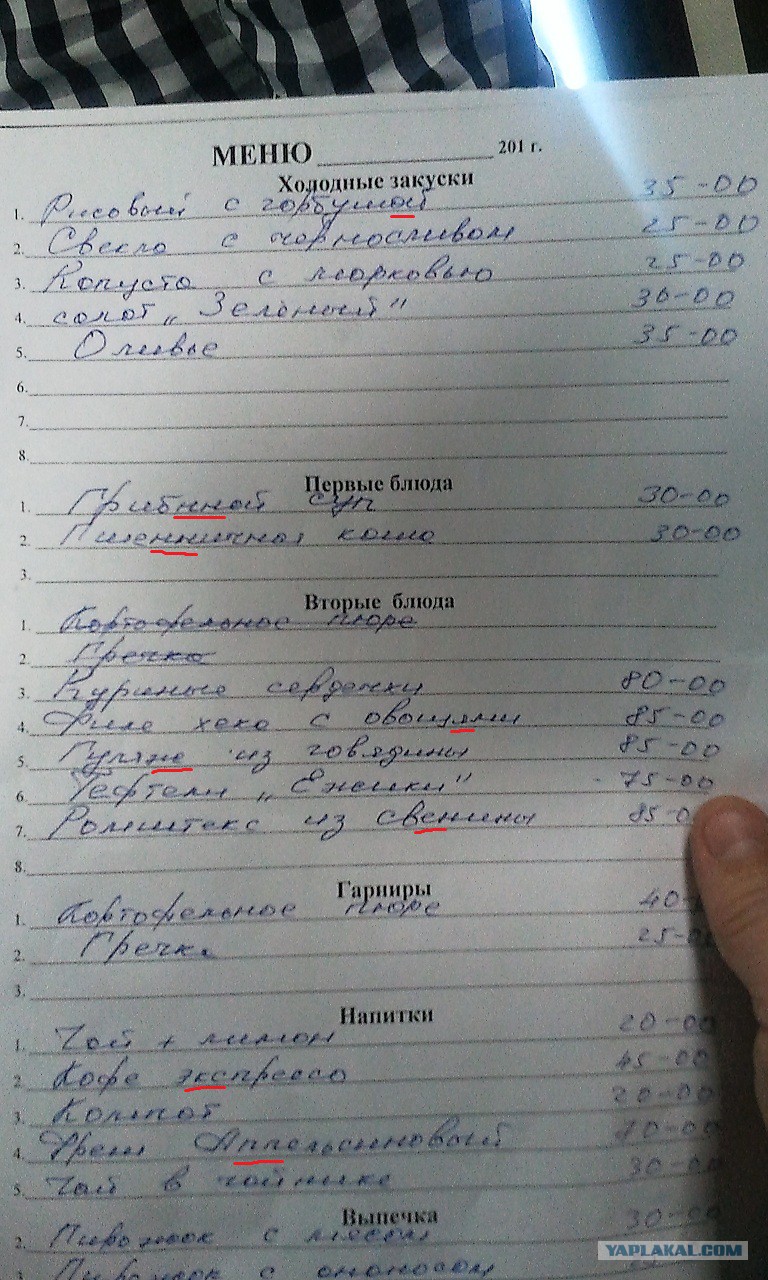 МЕНЮ 201 г.
Холодные закуски
1. Рисовый с горбушой 35-00
2. Свекла с черносливом 25-00
3. Капуста с морковью 25-00
4. салат „Зеленый" 30-00
5. Оливье 35-00
6.
7.
8.
Первые блюда
1. Грибнной суп 30-00
2. Пшенничная каша 30-00
3.
Вторые блюда
1. Картофельное пюре
2. Гречка
3. Куриные сердечки 80-00
4. Филе хека с овощями 85-00
5. Гуляж из говядины 85-00
6. Тефтели „Ежики" 75-00
7. Ромштекс из свенины 85-0
8.
Гарниры
1. Картофельное пюре 40-
2. Гречка 25-00
3.
Напитки
1. Чай + лимон 20-00
2. Кофе экспрессо 45-00
3. Компот 20-00
4. Фреш Аппельсиновый 70-00
5. Чай в чайнике 30-00
Выпечка
2. Пирожок с мясом 30-00
Пирожок с ананасом
YAPLAKAL.COM